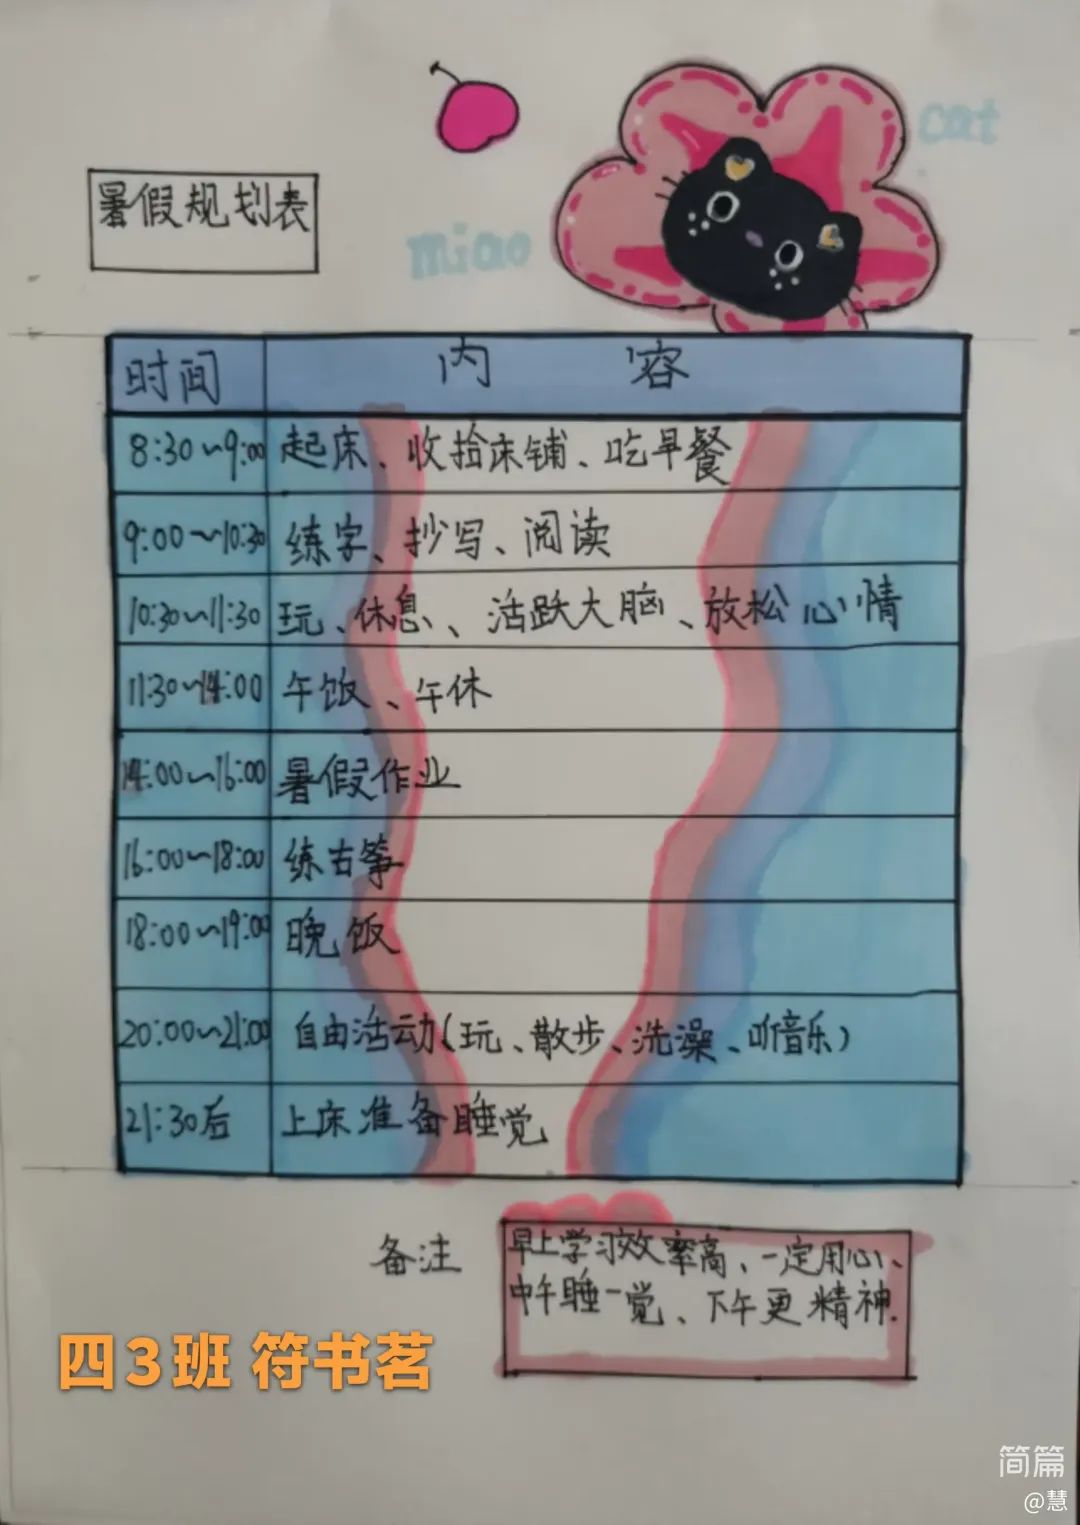 cat
暑假规划表
miao
时间 内容
8:30~9:00 起床、收拾床铺、吃早餐
9:00~10:30 练字、抄写、阅读
10:30~11:30 玩、休息、活跃大脑、放松心情
11:30~14:00 午饭、午休
14:00~16:00 暑假作业
16:00~18:00 练古筝
18:00~19:00 晚饭
20:00~21:00 自由活动(玩、散步、洗澡、听音乐)
21:30后 上床准备睡觉
备注 早上学习效率高、一定用心、
中午睡一觉、下午更精神.
四3班 符书茗
简篇
@慧